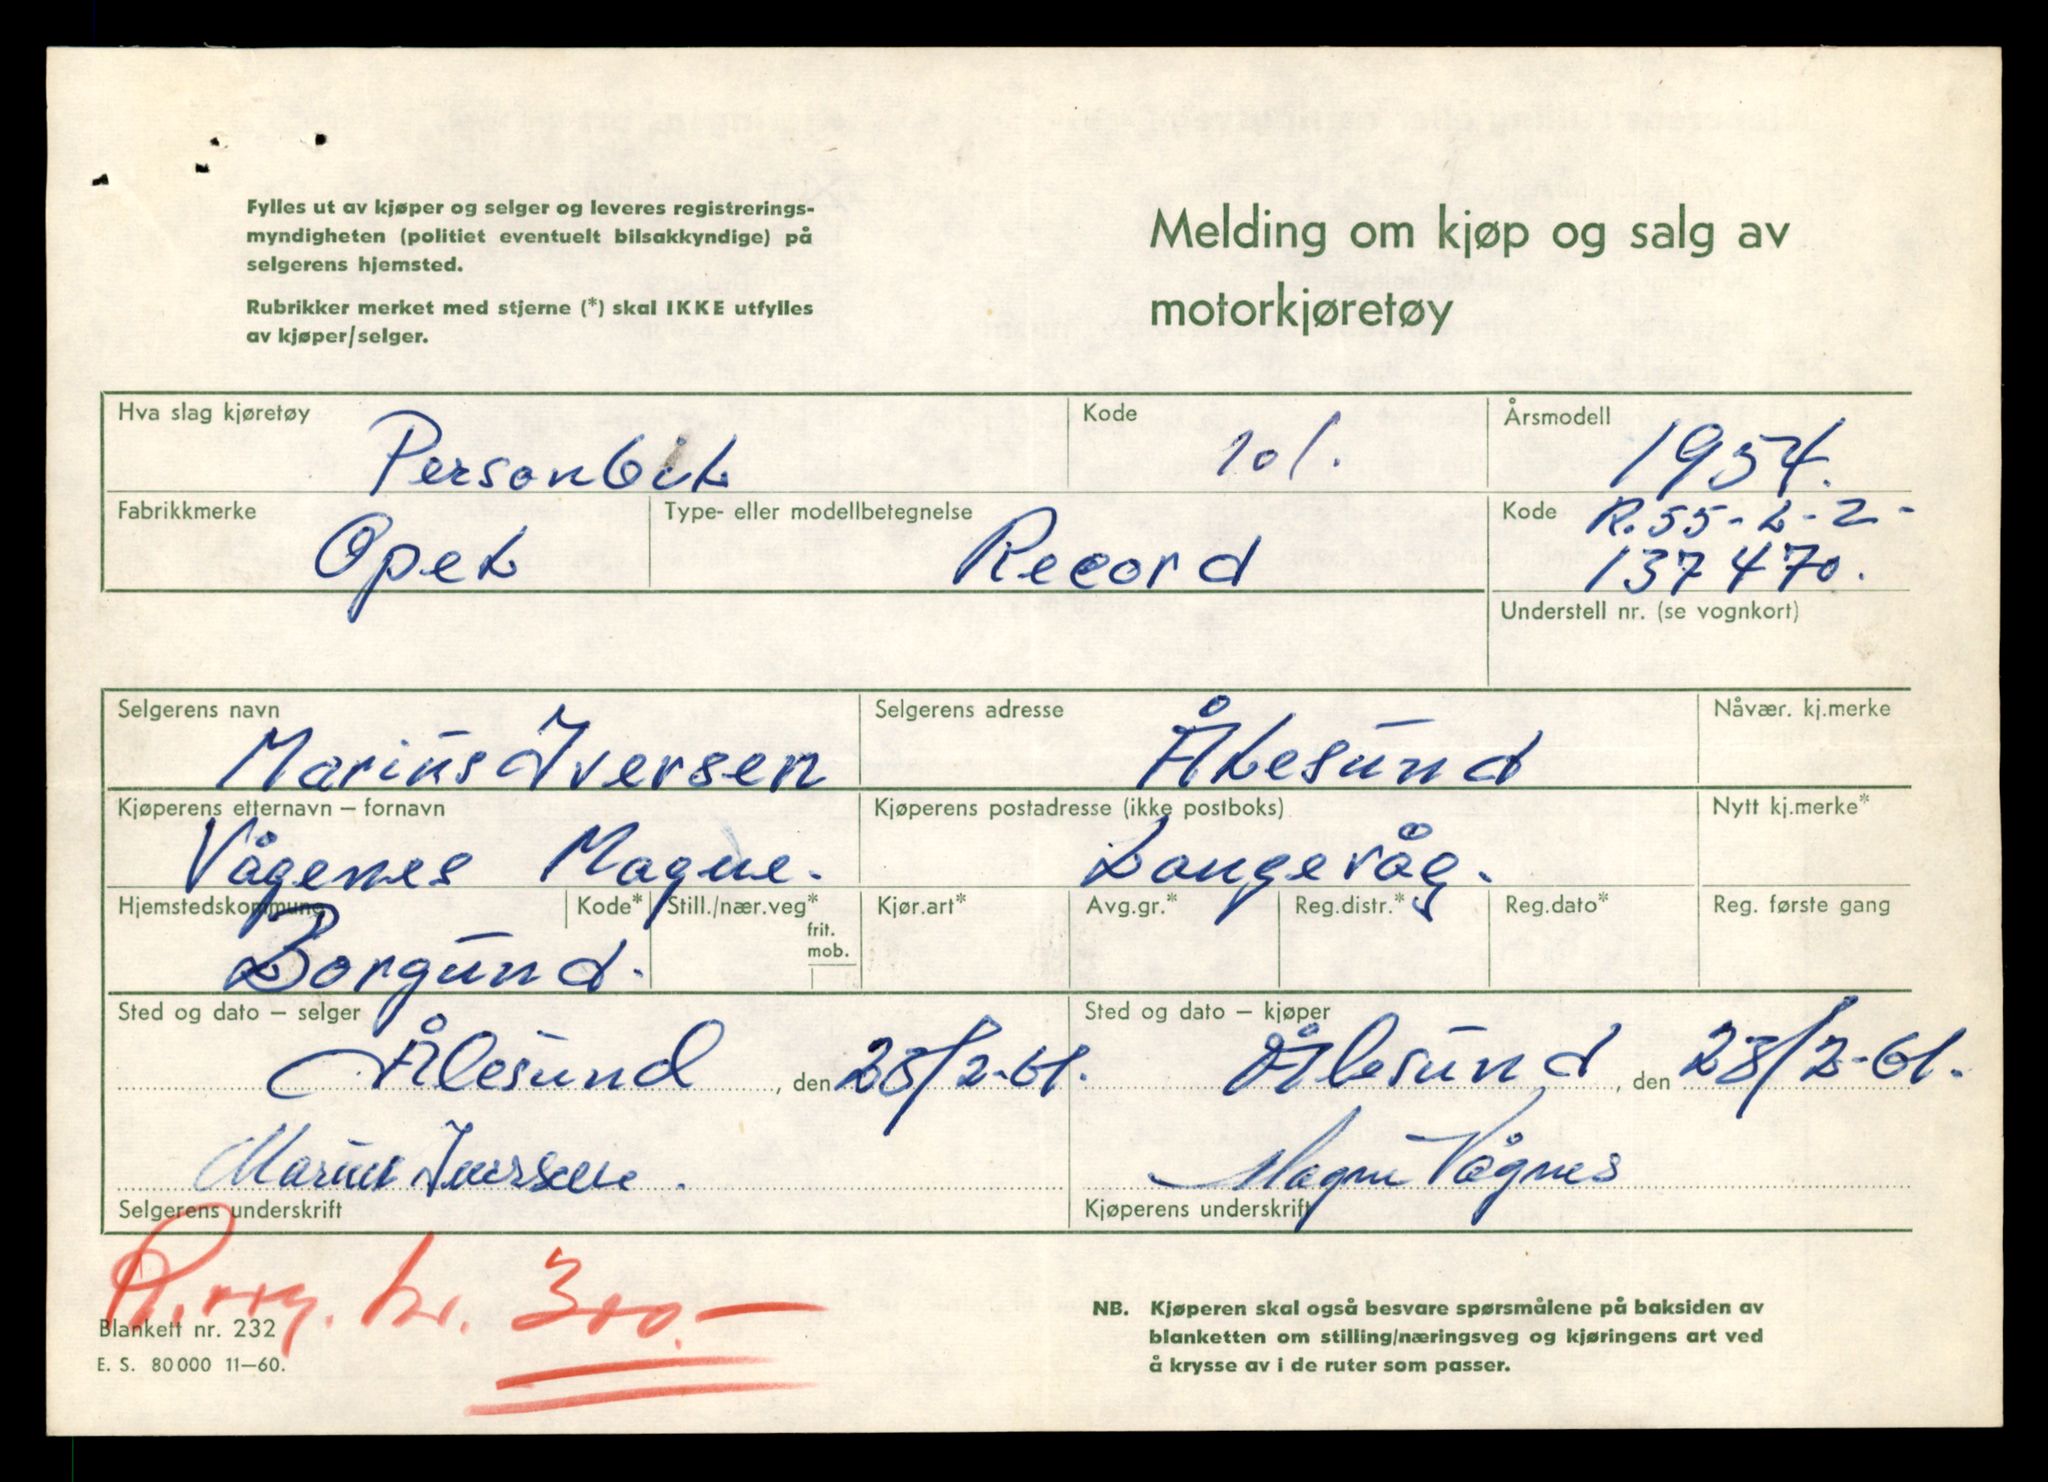 Fylles ut av kjøper og selger og leveres registrerings-
myndigheten (politiet eventuelt bilsakkyndige) på
selgerens hjemsted.
Rubrikker merket med stjerne (*) skal IKKE utfylles
av kjøper/selger.
Melding om kjøp og salg av
motorkjøretøy
Hva slag kjøretøy
Personbil
Kode
101.
Årsmodell
1954.
Fabrikkmerke
Opel
Type- eller modellbetegnelse
Record
Kode
R.55-L-2-
137470.
Understell nr. (se vognkort)
Selgerens navn
Marius Iversen
Selgerens adresse
Ålesund
Nåvær. kj.merke
Kjøperens etternavn – fornavn
Vågenes Magne.
Kjøperens postadresse (ikke postboks)
Langevåg.
Nytt kj.merke*
Hjemstedskommune
Borgund.
Kode*
Still./nær.veg*
frit.
mob.
Kjør.art*
Avg.gr.*
Reg.distr.*
Reg.dato*
Reg. første gang
Sted og dato – selger
Ålesund, den 28/2-61.
Sted og dato – kjøper
Ålesund, den 28/2-61.
Marius Iversen.
Selgerens underskrift
Magne Vågnes
Kjøperens underskrift
kr. 300.-
Blankett nr. 232
E. S. 80000 11–60.
NB. Kjøperen skal også besvare spørsmålene på baksiden av
blanketten om stilling/næringsveg og kjøringens art ved
å krysse av i de ruter som passer.